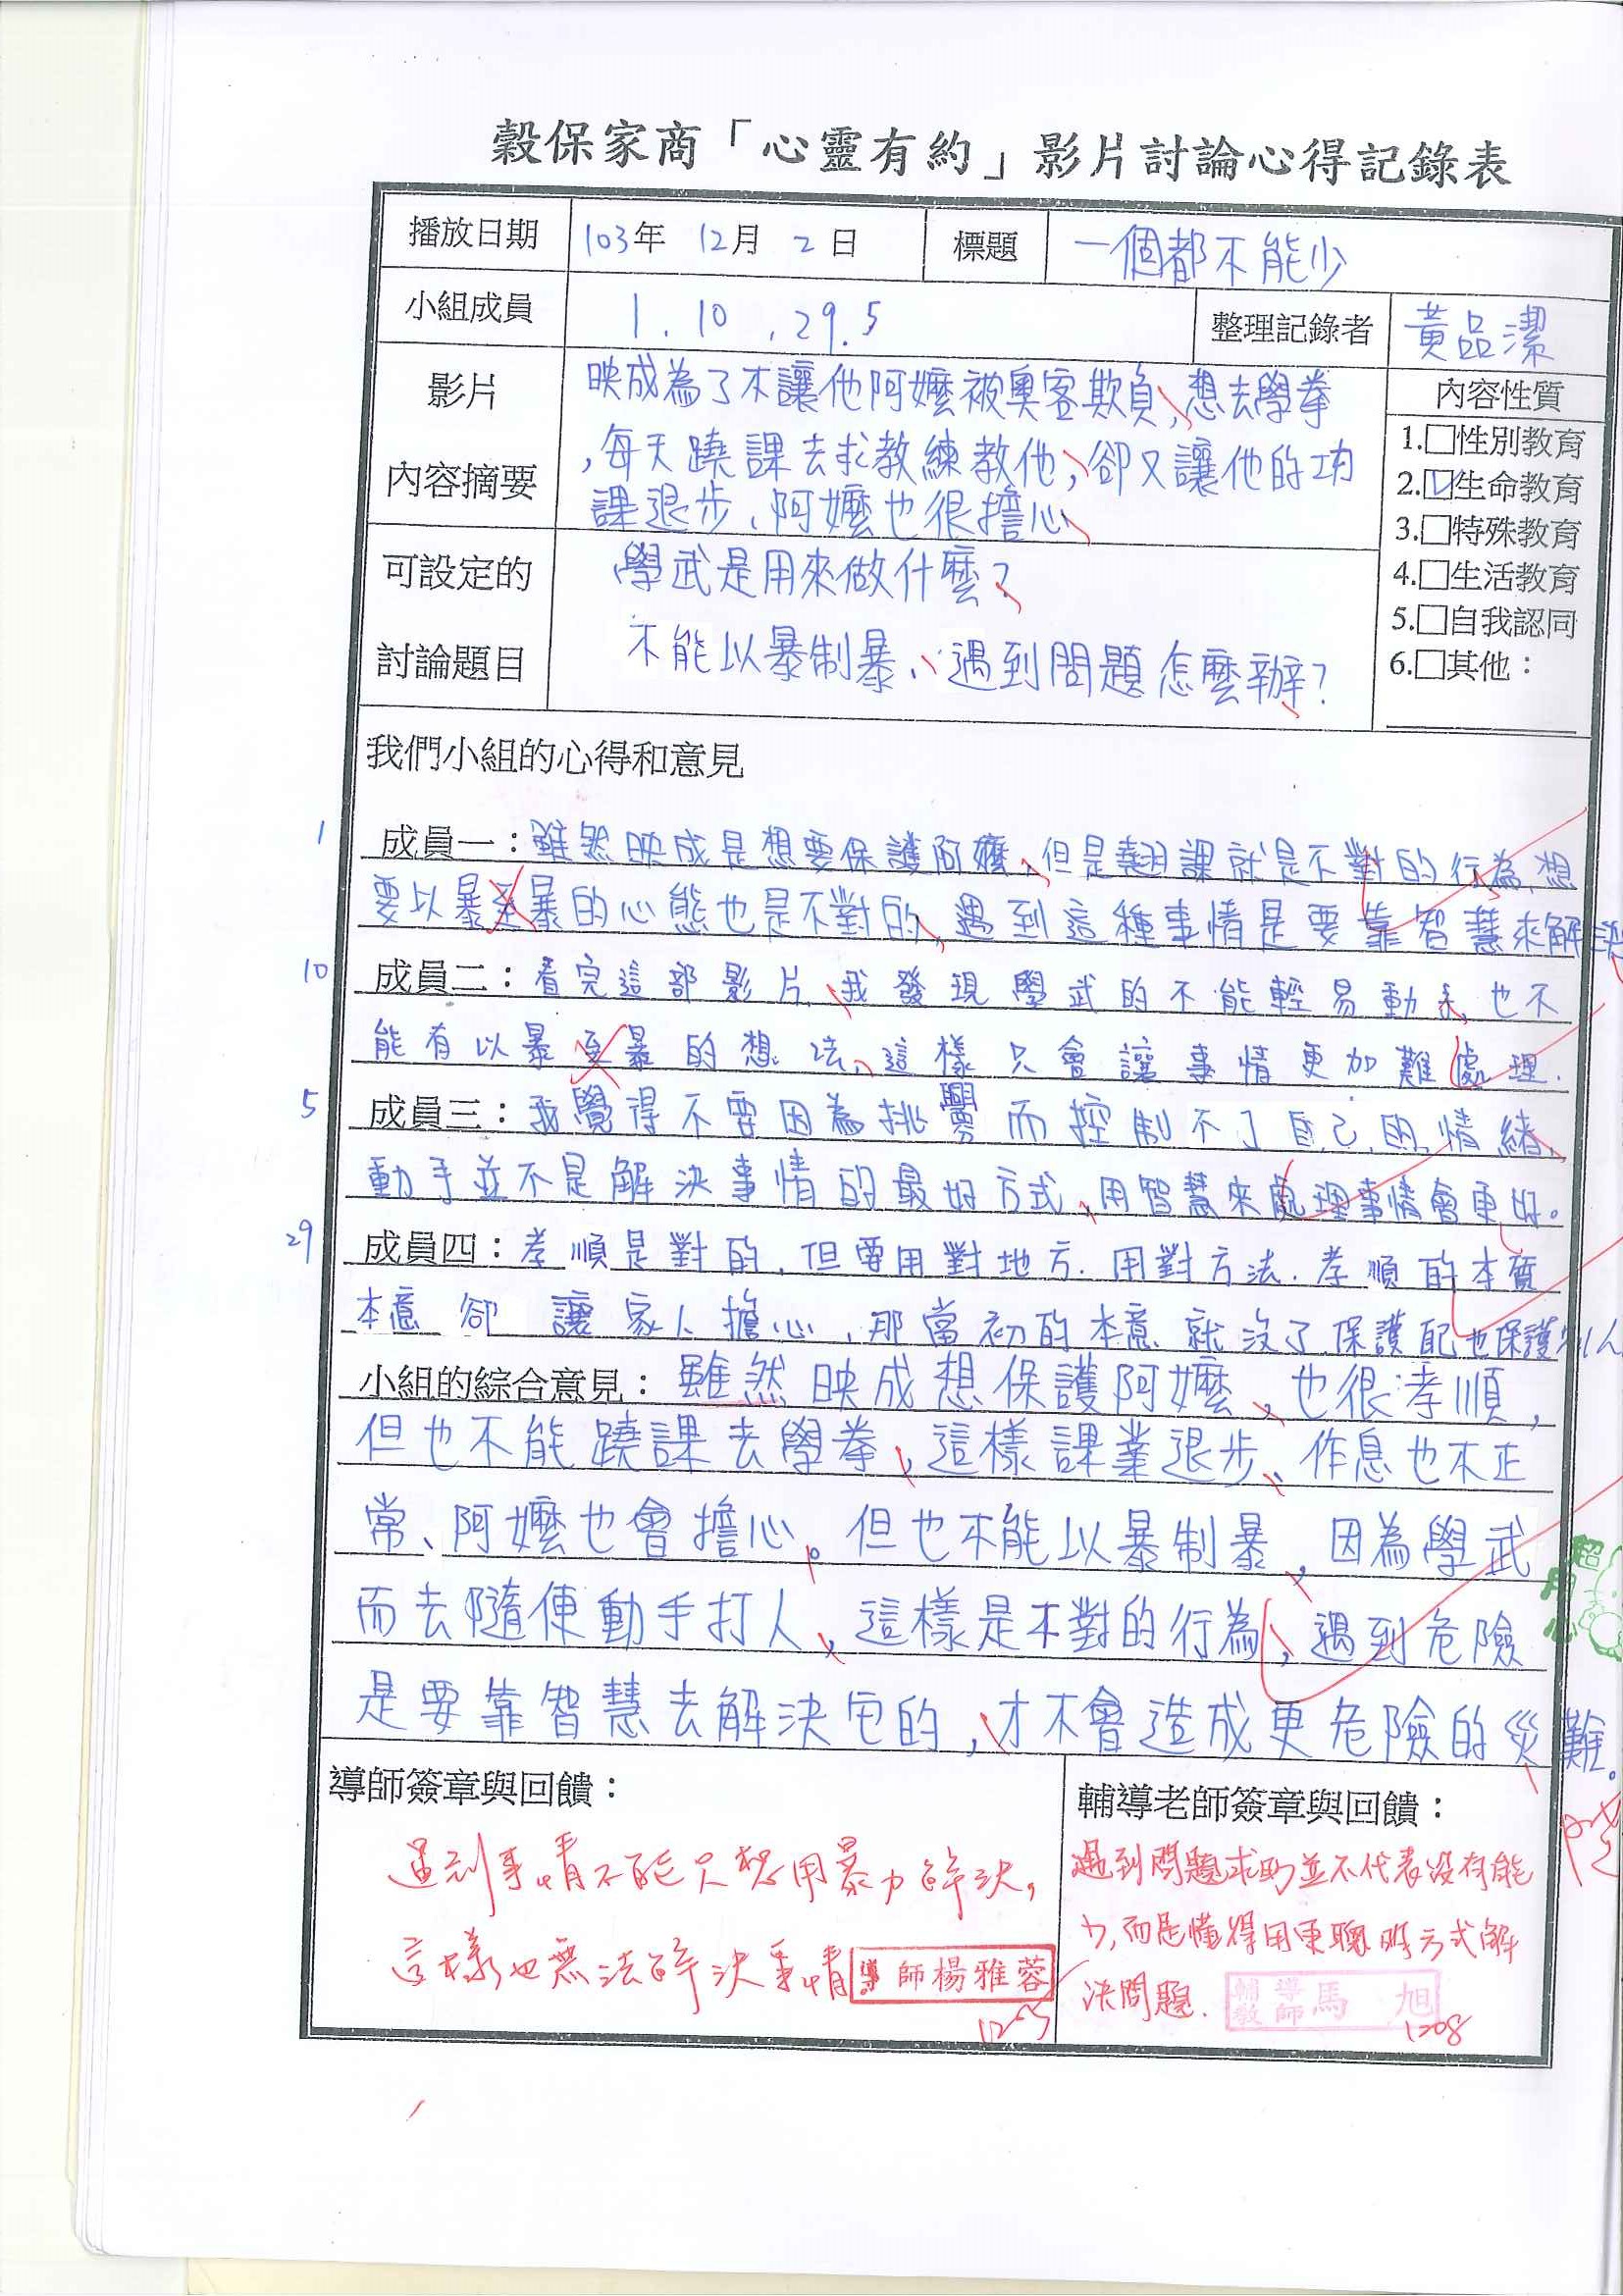 穀保家商「心靈有約」影片討論心得記錄表
播放日期 103年 12月 2日 標題 一個都不能少
小組成員 1.10.29.5 整理記錄者 黃品潔
影片
內容摘要
映成為了不讓他阿嬤被奧客欺負,想去學拳
,每天蹺課去求教練教他,卻又讓他的功
課退步、阿嬤也很擔心
內容性質
1.□性別教育
2.☑生命教育
3.□特殊教育
4.□生活教育
5.□自我認同
6.□其他:
可設定的
討論題目
學武是用來做什麼?
不能以暴制暴、遇到問題怎麼辦?
我們小組的心得和意見
1 成員一:雖然映成是想要保護阿嬤,但是翹課就是不對的行為,想
要以暴至暴的心態也是不對的,遇到這種事情是要靠智慧來解決
10 成員二:看完這部影片,我發現學武的不能輕易動手,也不
能有以暴至暴的想法,這樣只會讓事情更加難處理.
5 成員三:我覺得不要因為挑釁而控制不了自己的情緒,
動手並不是解決事情的最好方式,用智慧來處理事情會更好。
29 成員四:孝順是對的,但要用對地方.用對方法.孝順的本質
本意卻讓家人擔心,那當初的本意就沒了.保護自己也保護別人
小組的綜合意見:雖然映成想保護阿嬤,也很孝順,
但也不能蹺課去學拳,這樣課業退步、作息也不正
常、阿嬤也會擔心。但也不能以暴制暴,因為學武
而去隨便動手打人,這樣是不對的行為,遇到危險
是要靠智慧去解決它的,才不會造成更危險的災難。
超
用
心
導師簽章與回饋:
遇到事情不能只想用暴力解決,
這樣也無法解決事情
導師楊雅蓉
1205
輔導老師簽章與回饋:
遇到問題求助並不代表沒有能
力,而是懂得用更聰明方式解
決問題.
輔導教師馬旭
1208